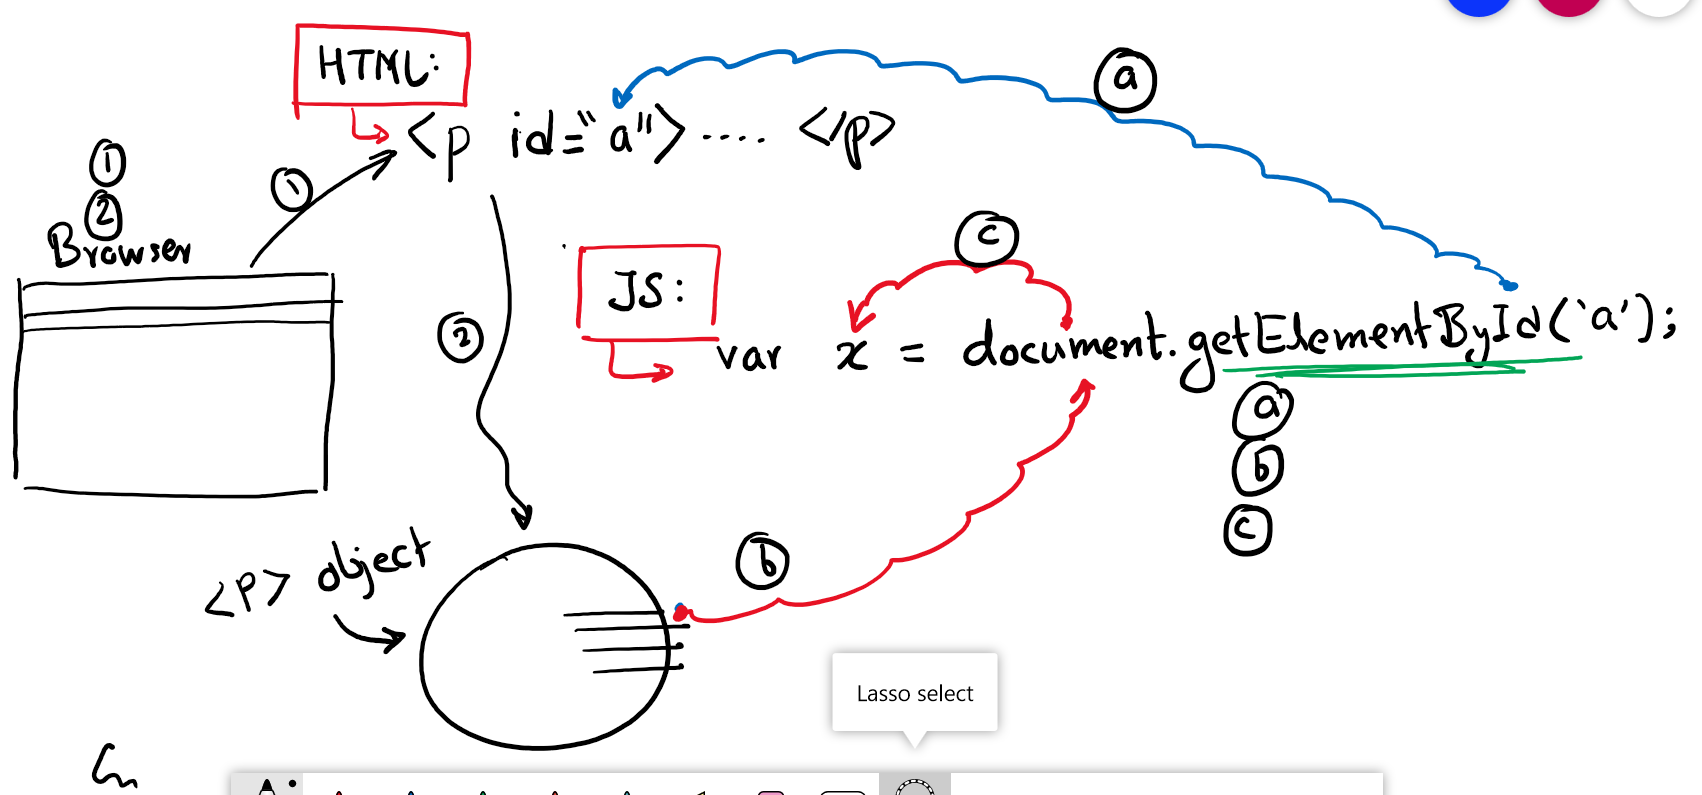 HTML:
<p id="a">.... </p>
a
1
2
1
Browser
c
JS:
2
var x = document.getElementById('a');
a
b
c
b
<p> object
Lasso select